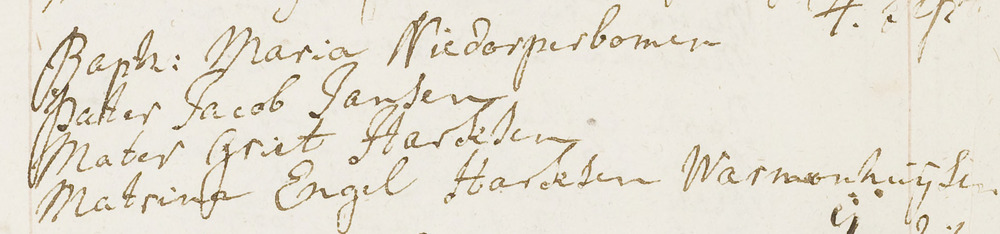 Bapt: Maria Niedorperbomen
Pater Jacob Jansen
Mater Griet Harcksen
Matrina Engel Harcksen Warmonhuijsen